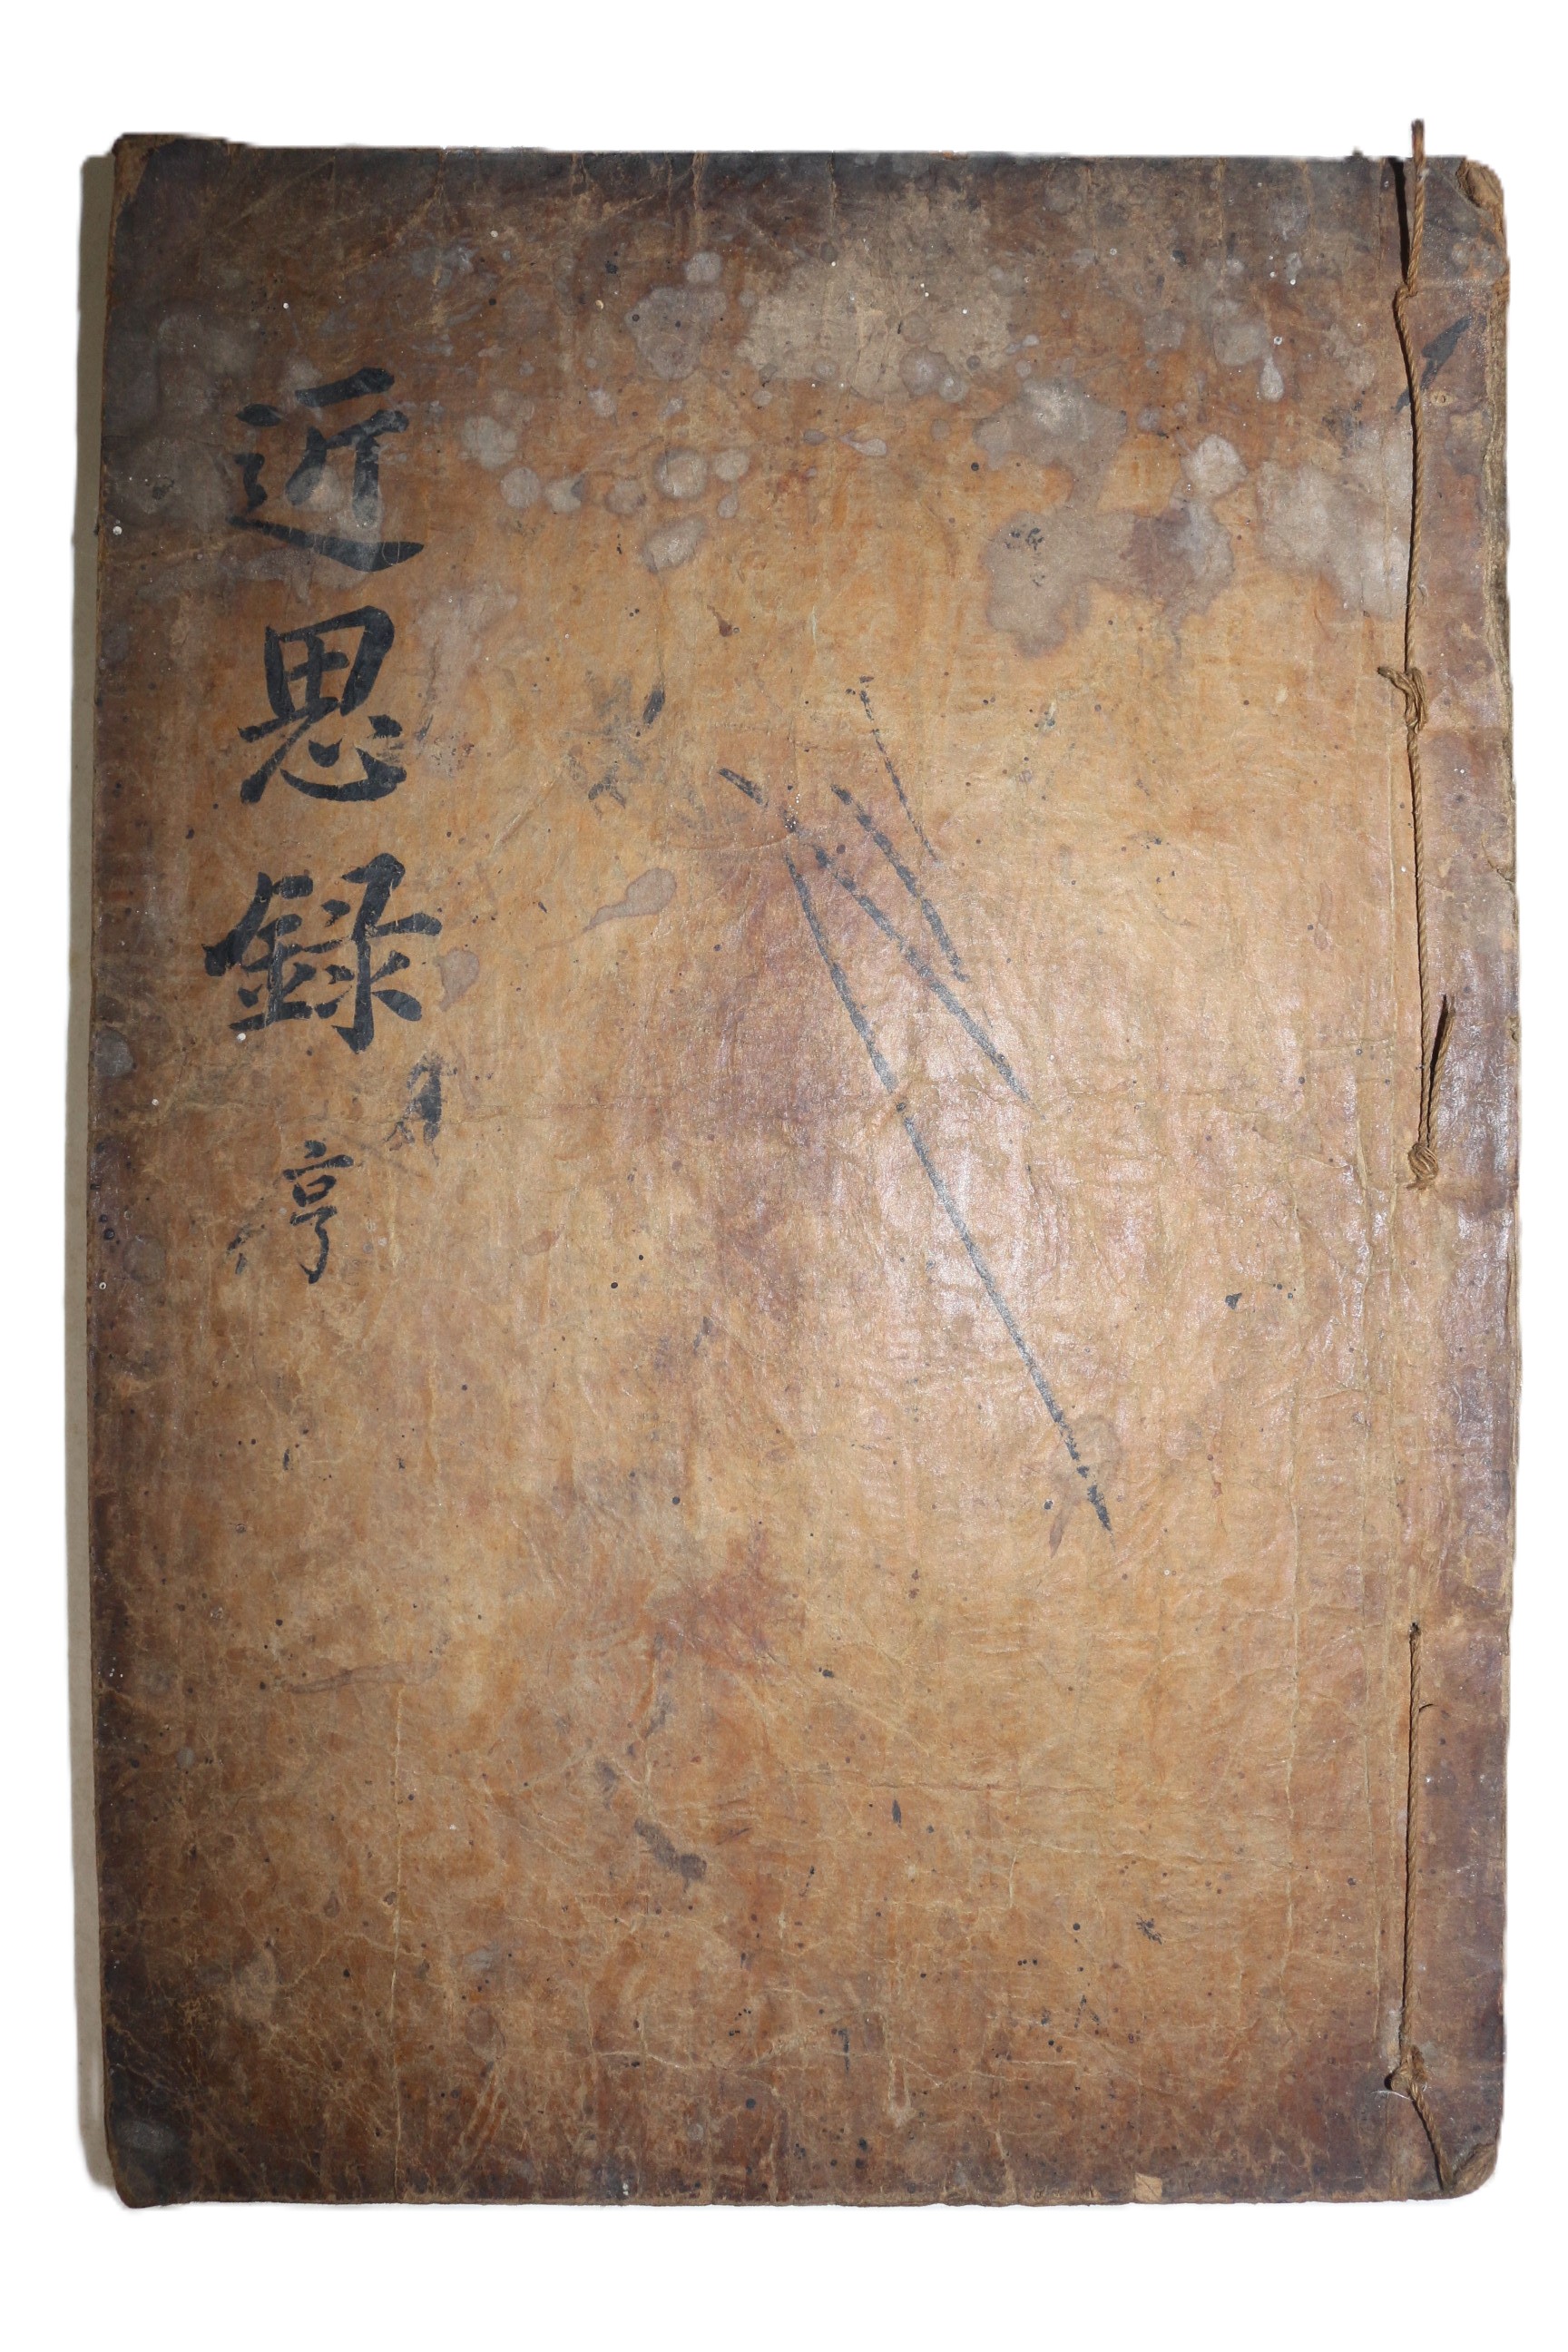 近思錄
亨